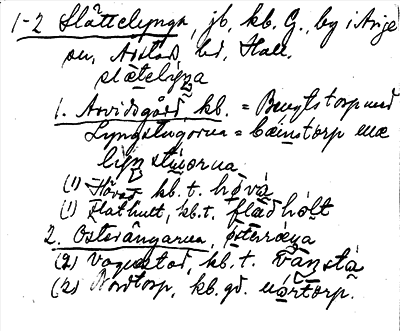 1-2 Slättelynga, jb, kb. G., by i Årje
sn, Årstads hd, Hall.
slätelyŋa
1. Arvidsgård, kb. = Bengtstorp med
Lyngstugorna = bæinstorp mæ
lyŋstuorna
(1) Hövat kb. t. hövà
(1) Flathult, kb. t. fladhòlt
2. Östorängarna, östorræŋa
(2) Vagnstad, kb. t. vaŋstà
(2) Nordtorp, kb. gd. nórtòrp.